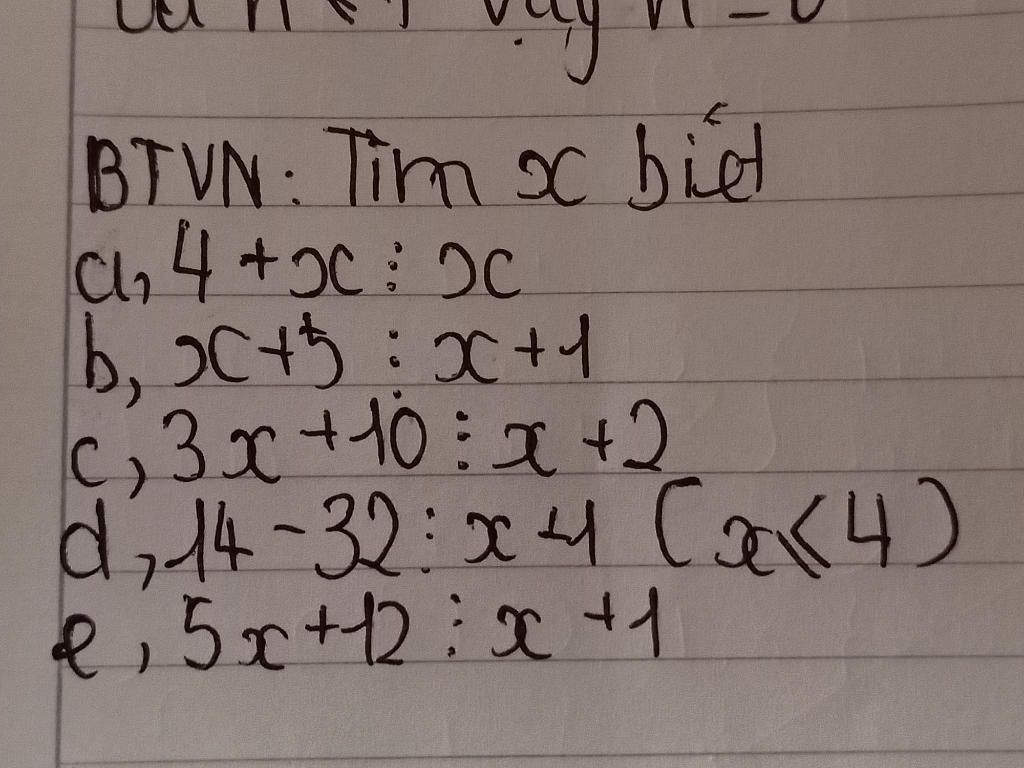 n < 1 vậy n = 0
BTVN: Tìm x biết
a, 4 + x ⋮ x
b, x + 5 ⋮ x + 1
c, 3x + 10 ⋮ x + 2
d, 14 - 32 ⋮ x + 1 (x ⩽ 4)
e, 5x + 12 ⋮ x + 1